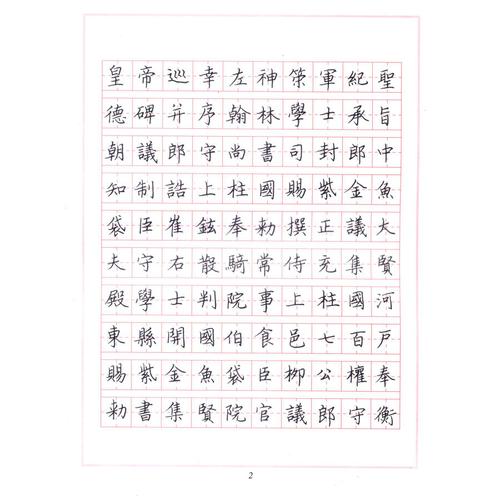 皇帝巡幸左神策軍紀聖
德碑并序翰林學士承旨
朝議郎守尚書司封郎中
知制誥上柱國賜紫金魚
袋臣崔鉉奉勑撰正議大
夫守右散騎常侍充集賢
殿學士判院事上柱國河
東縣開國伯食邑七百戶
賜紫金魚袋臣柳公權奉
勑書集賢院官議郎守衡
2